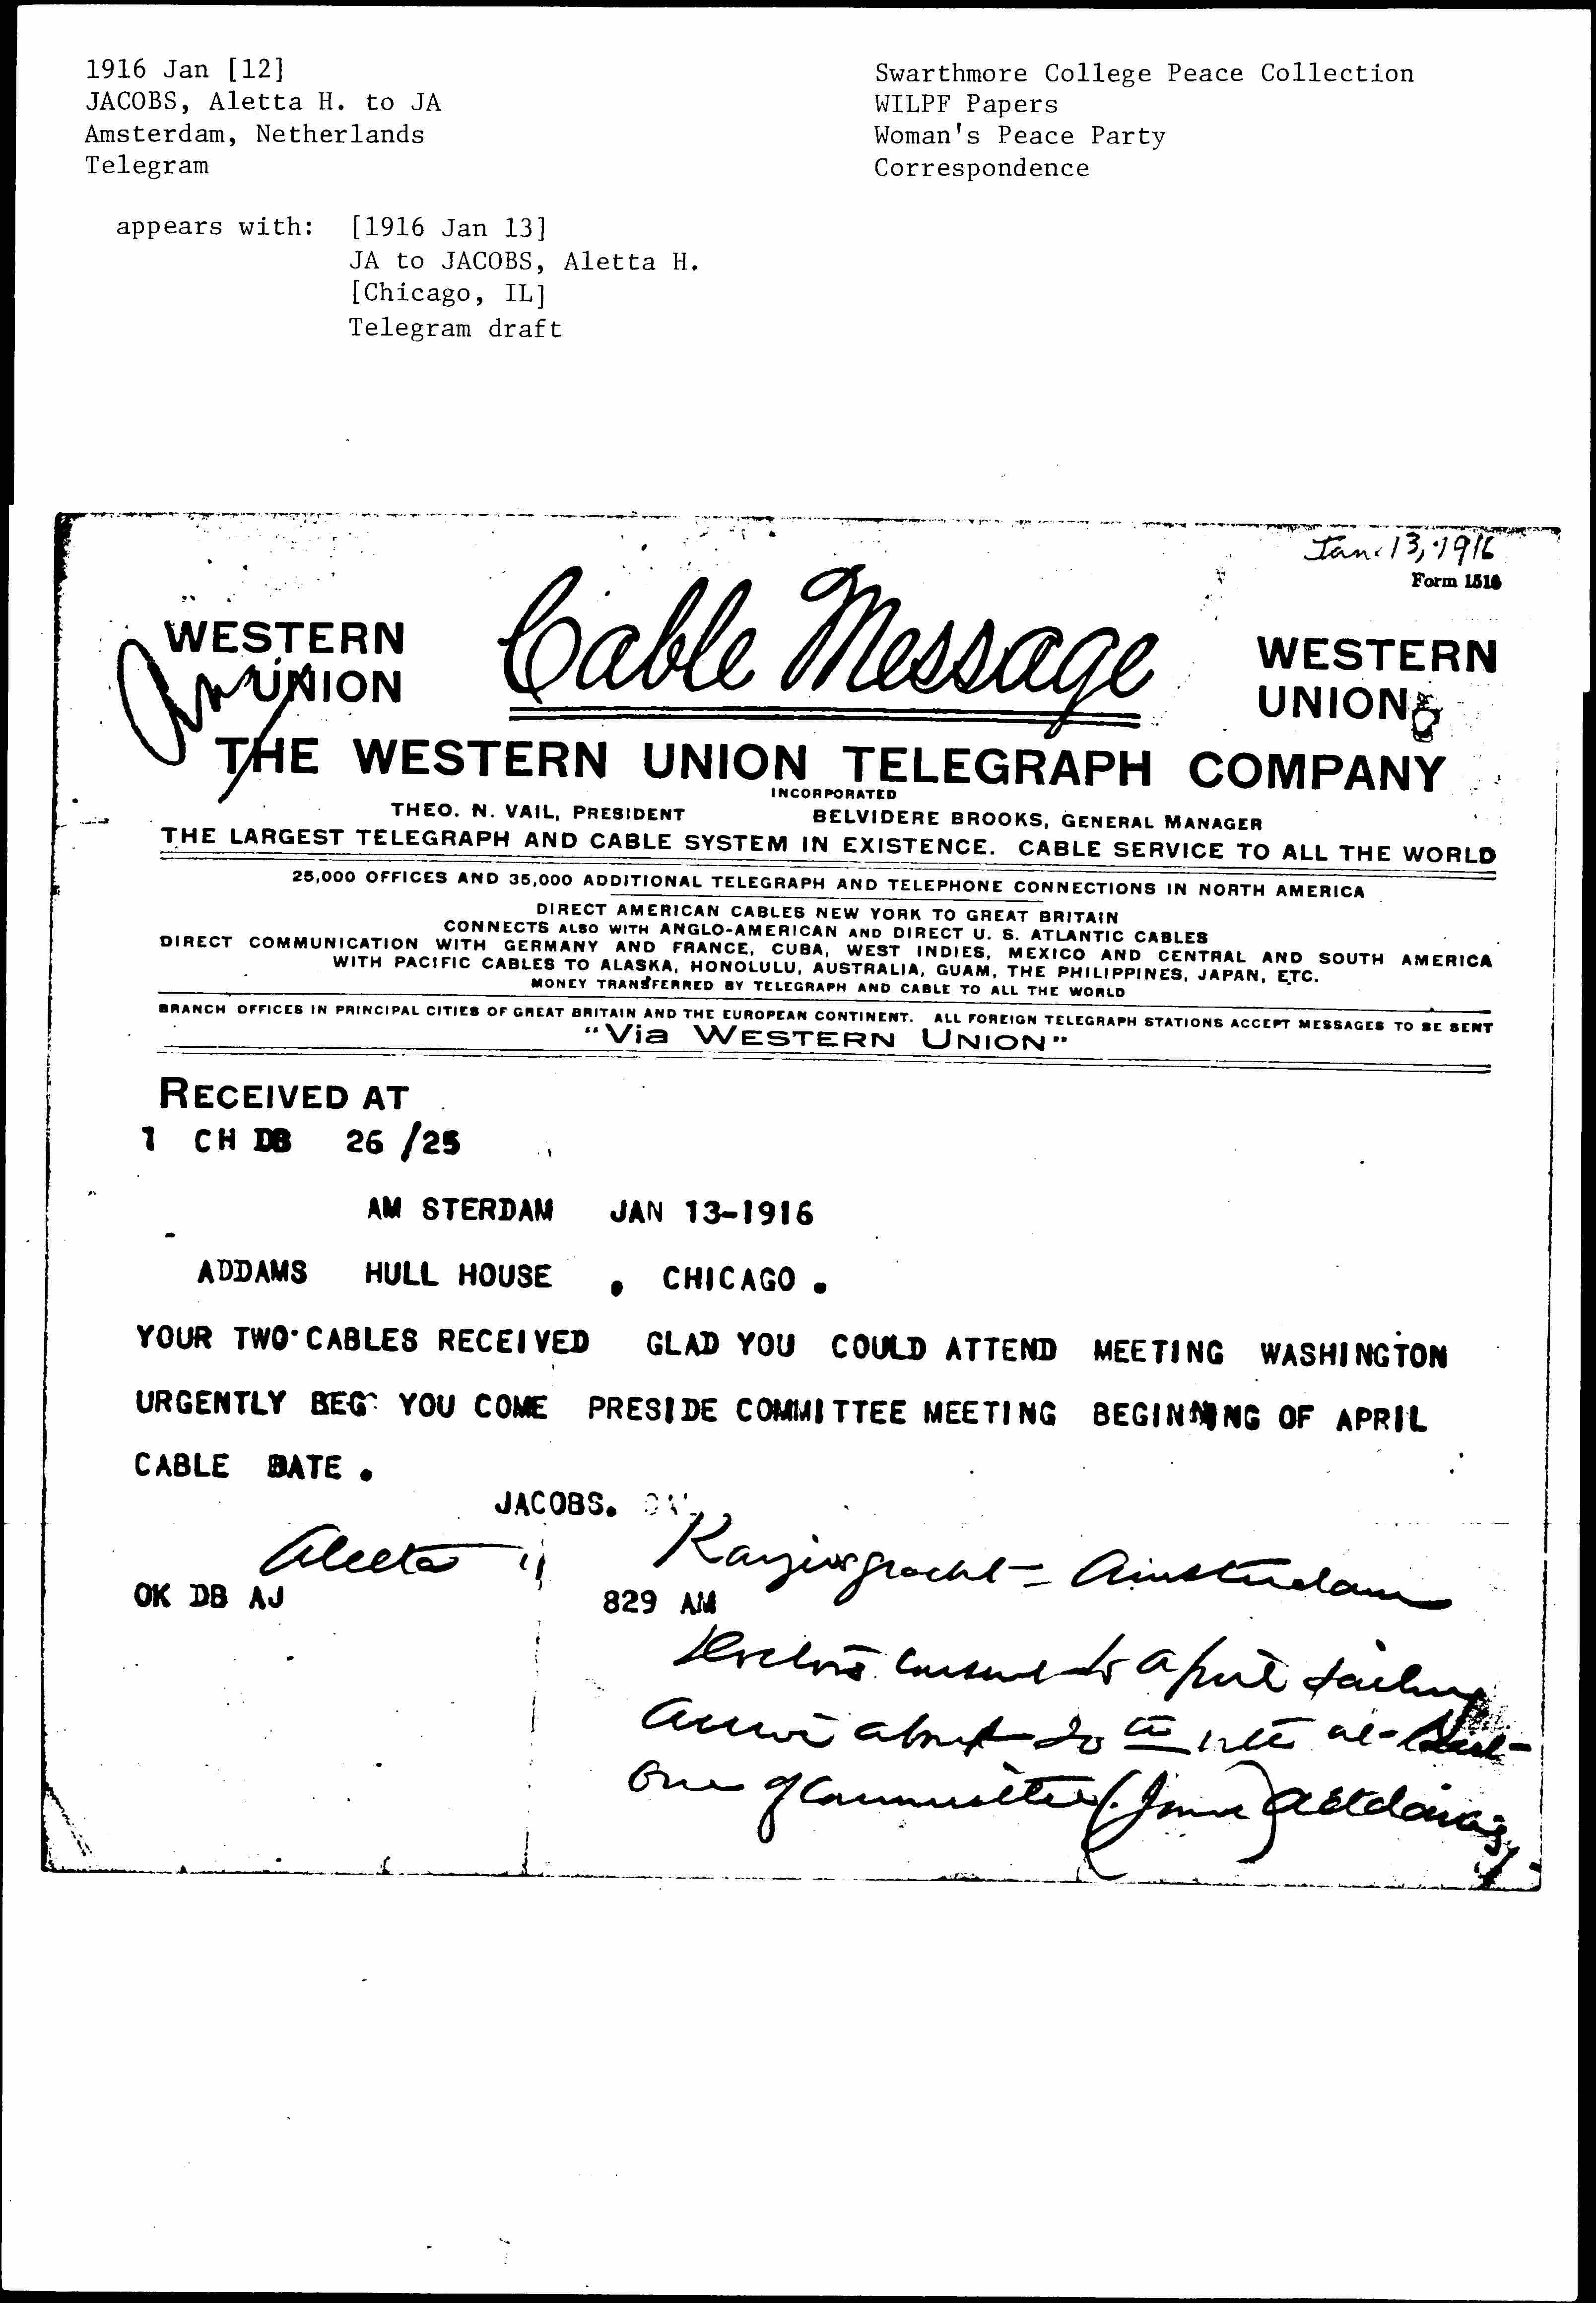 1916 Jan [12]
JACOBS, Aletta H. to JA
Amsterdam, Netherlands
Telegram
Swarthmore College Peace Collection
WILPF Papers
Woman's Peace Party
Correspondence
appears with: [1916 Jan 13]
JA to JACOBS, Aletta H.
[Chicago, IL]
Telegram draft
Jan. 13, 1916
Form 1516
WESTERN UNION
Cable Message
WESTERN UNION
THE WESTERN UNION TELEGRAPH COMPANY
INCORPORATED
THEO. N. VAIL, PRESIDENT BELVIDERE BROOKS, GENERAL MANAGER
THE LARGEST TELEGRAPH AND CABLE SYSTEM IN EXISTENCE. CABLE SERVICE TO ALL THE WORLD
25,000 OFFICES AND 35,000 ADDITIONAL TELEGRAPH AND TELEPHONE CONNECTIONS IN NORTH AMERICA
DIRECT AMERICAN CABLES NEW YORK TO GREAT BRITAIN
CONNECTS ALSO WITH ANGLO-AMERICAN AND DIRECT U. S. ATLANTIC CABLES
DIRECT COMMUNICATION WITH GERMANY AND FRANCE, CUBA, WEST INDIES, MEXICO AND CENTRAL AND SOUTH AMERICA
WITH PACIFIC CABLES TO ALASKA, HONOLULU, AUSTRALIA, GUAM, THE PHILIPPINES, JAPAN, ETC.
MONEY TRANSFERRED BY TELEGRAPH AND CABLE TO ALL THE WORLD
BRANCH OFFICES IN PRINCIPAL CITIES OF GREAT BRITAIN AND THE EUROPEAN CONTINENT. ALL FOREIGN TELEGRAPH STATIONS ACCEPT MESSAGES TO BE SENT
"Via WESTERN UNION"
RECEIVED AT
1 CH DB 26 /25
AM STERDAM JAN 13-1916
ADDAMS HULL HOUSE , CHICAGO .
YOUR TWO CABLES RECEIVED GLAD YOU COULD ATTEND MEETING WASHINGTON
URGENTLY BEG YOU COME PRESIDE COMMITTEE MEETING BEGINNING OF APRIL
CABLE DATE .
JACOBS.
Aletta Amsterdam
OK DB AJ 829 AM
Doctors consent to April sailing
arrive about 20th with at least
one of Committee (Jane) Addams